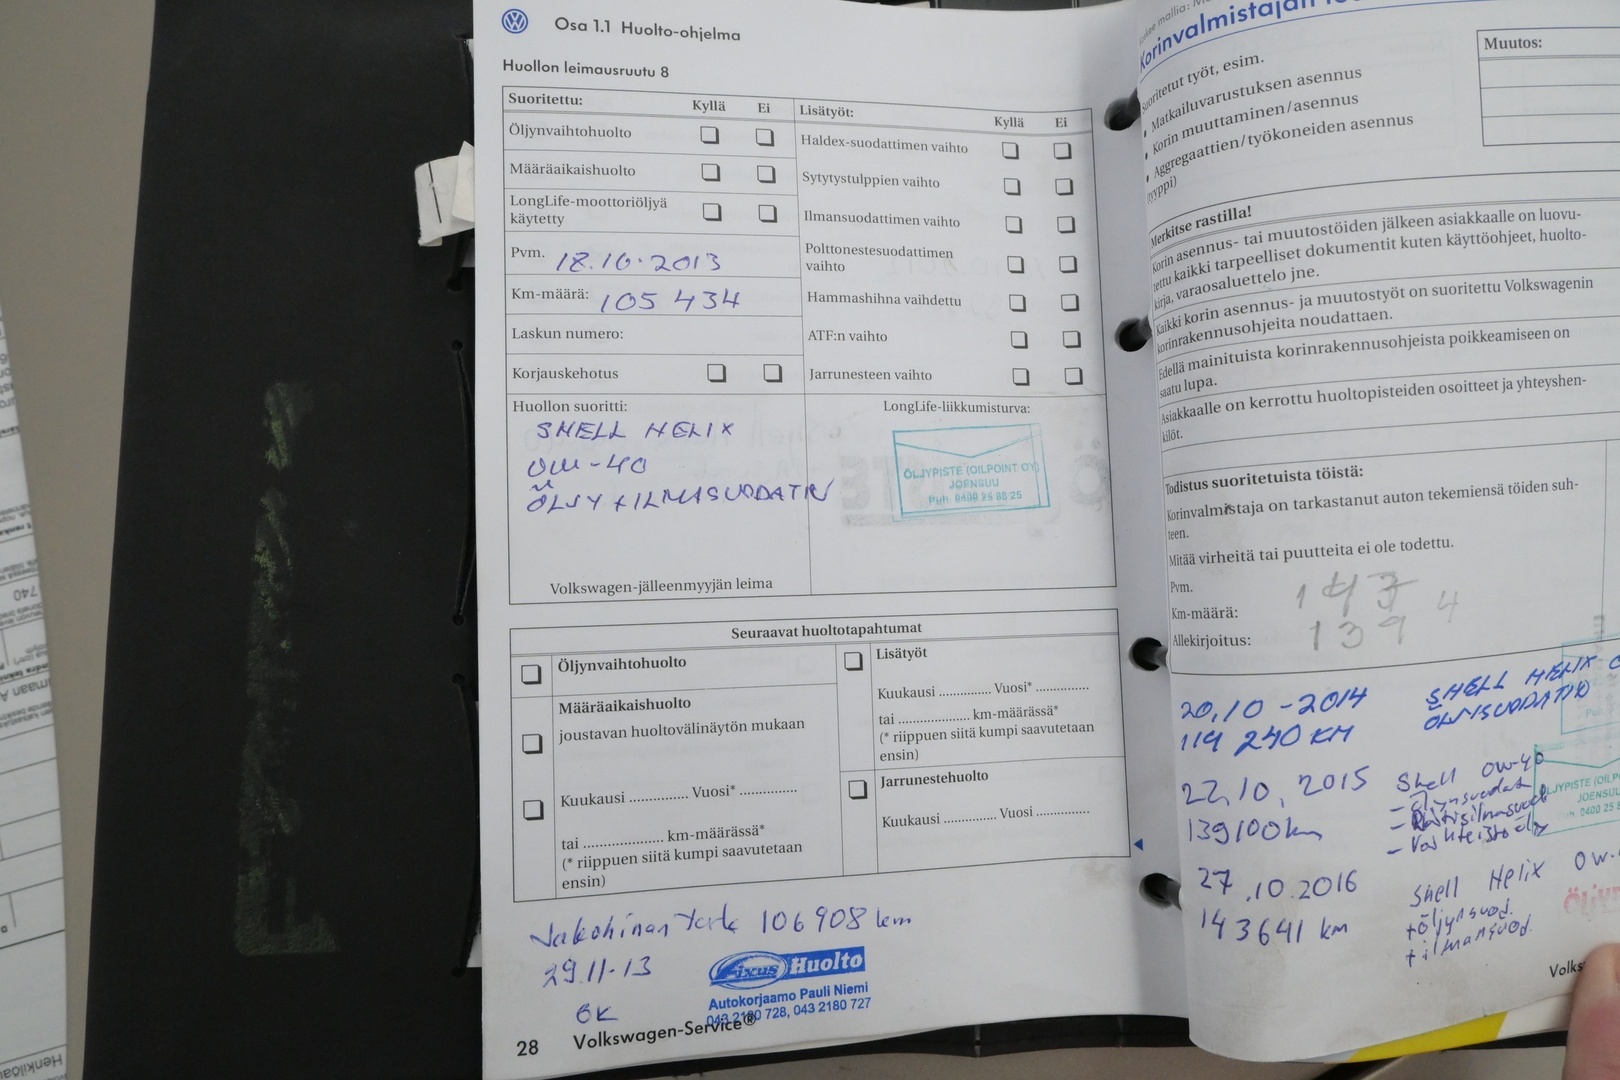 Osa 1.1 Huolto-ohjelma
Huollon leimausruutu 8
Suoritettu: Kyllä Ei
Öljynvaihtohuolto
Määräaikaishuolto
LongLife-moottoriöljyä
käytetty
Pvm. 18.10.2013
Km-määrä: 105 434
Laskun numero:
Korjauskehotus
Lisätyöt: Kyllä Ei
Haldex-suodattimen vaihto
Sytytystulppien vaihto
Ilmansuodattimen vaihto
Polttonestesuodattimen
vaihto
Hammashihna vaihdettu
ATF:n vaihto
Jarrunesteen vaihto
Huollon suoritti:
SHELL HELIX
0W-40
ÖLJY + ILMASUODATIN
Volkswagen-jälleenmyyjän leima
LongLife-liikkumisturva:
ÖLJYPISTE (OILPOINT OY)
JOENSUU
Puh. 0400 25 88 25
Seuraavat huoltotapahtumat
Öljynvaihtohuolto
Määräaikaishuolto
joustavan huoltovälinäytön mukaan
Kuukausi .............. Vuosi* ..............
tai ................... km-määrässä*
(* riippuen siitä kumpi saavutetaan
ensin)
Lisätyöt
Kuukausi ............. Vuosi* .............
tai ................. km-määrässä*
(* riippuen siitä kumpi saavutetaan
ensin)
Jarrunestehuolto
Kuukausi ............. Vuosi .............
106 908 km
29.11-13
OK
Fixus Huolto
Autokorjaamo Pauli Niemi
043 2180 728, 043 2180 727
28 Volkswagen-Service®
Korinvalmistajan
Suoritetut työt, esim.
• Matkailuvarustuksen asennus
• Korin muuttaminen/asennus
• Aggregaattien/työkoneiden asennus
(tyyppi)
Muutos:
Merkitse rastilla!
Korin asennus- tai muutostöiden jälkeen asiakkaalle on luovu-
tettu kaikki tarpeelliset dokumentit kuten käyttöohjeet, huolto-
kirja, varaosaluettelo jne.
Kaikki korin asennus- ja muutostyöt on suoritettu Volkswagenin
korinrakennusohjeita noudattaen.
Edellä mainituista korinrakennusohjeista poikkeamiseen on
saatu lupa.
Asiakkaalle on kerrottu huoltopisteiden osoitteet ja yhteyshen-
kilöt.
Todistus suoritetuista töistä:
Korinvalmistaja on tarkastanut auton tekemiensä töiden suh-
teen.
Mitää virheitä tai puutteita ei ole todettu.
Pvm.
Km-määrä:
Allekirjoitus:
139
4
20.10-2014 SHELL HELIX
119 240 KM ÖLJYSUODATIN
22.10.2015 Shell 0W-40
139100km - Öljynsuodat
ÖLJYPISTE
JOENSUU
27.10.2016 Shell Helix 0W-
143641 km + öljynsuod.
+ ilmansuod.